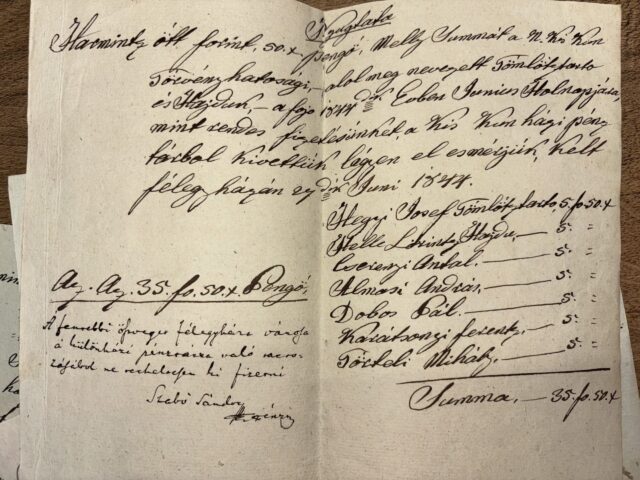 Nyugtata
Harmintz ött forint, 50.x pengö, Melly Summát a N. Kis Kun
Törvényhatosági, alol meg nevezett Tömlötztarto
és Hajduk, a fojo 1844dik Évben Junius Holnapjára,
mint rendes fizetésünket, a Kis Kun házi pénz
tárbol kivettük légyen el esmerjük, költ
félegyházán 29dik Juni 1844.
Hegyi Josef Tömlötztarto, 5.fo.50.x
Helle Lörintz Hajdu, — 5. "
Cserenyi Antal. — 5. "
Almási András, — 5. "
Dobos Pál. — 5. "
Karátsonyi ferentz, — 5. "
Törteli Mihály, — 5. "
Summa, — 35.fo.50.x
Az. Az. 35.fo.50.x. Pengö,
A fenebbi összveget félegyháza városa
a különházi pénztárba való
ki fizetni
Szabó Sándor